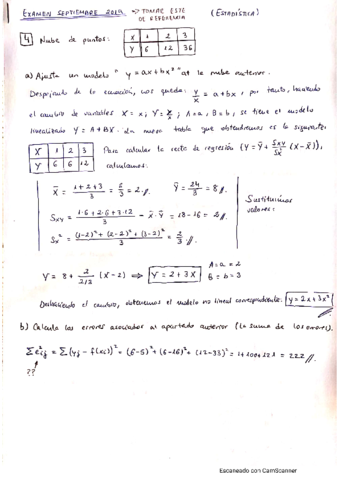 EXAMEN SEPTIEMBRE 2019 → TOMAR ESTE DE REFERENCIA (ESTADÍSTICA)
4 Nube de puntos: X 1 2 3
Y 6 12 36
a) Ajusta un modelo "y = ax + bx²" a la nube anterior.
Despejando de la ecuación, nos queda: y/x = a + bx, por tanto, haciendo
el cambio de variables X = x; Y = y/x; A = a, B = b, se tiene el modelo
linealizado Y = A + BX. La nueva tabla que obtendremos es la siguiente:
X 1 2 3 Para calcular la recta de regresión (Y = Ȳ + Sxy/Sx² (X - X̄)),
Y 6 6 12 calculamos:
X̄ = (1+2+3)/3 = 6/3 = 2 // Ȳ = 24/3 = 8 //
Sxy = (1·6+2·6+3·12)/3 - X̄·Ȳ = 18-16 = 2 //
Sx² = ((1-2)²+(2-2)²+(3-2)²)/3 = 2/3 //
Sustituimos
valores:
Y = 8 + 2/(2/3) (X-2) ⟹ Y = 2 + 3X
A = a = 2
B = b = 3
Deshaciendo el cambio, obtenemos el modelo no lineal correspondiente: y = 2x + 3x²
b) Calcula los errores asociados al apartado anterior (la suma de los errores).
Σe²ij = Σ(yj - f(xi))² = (6-5)² + (6-16)² + (12-33)² = 1+100+121 = 222 //
??
Escaneado con CamScanner